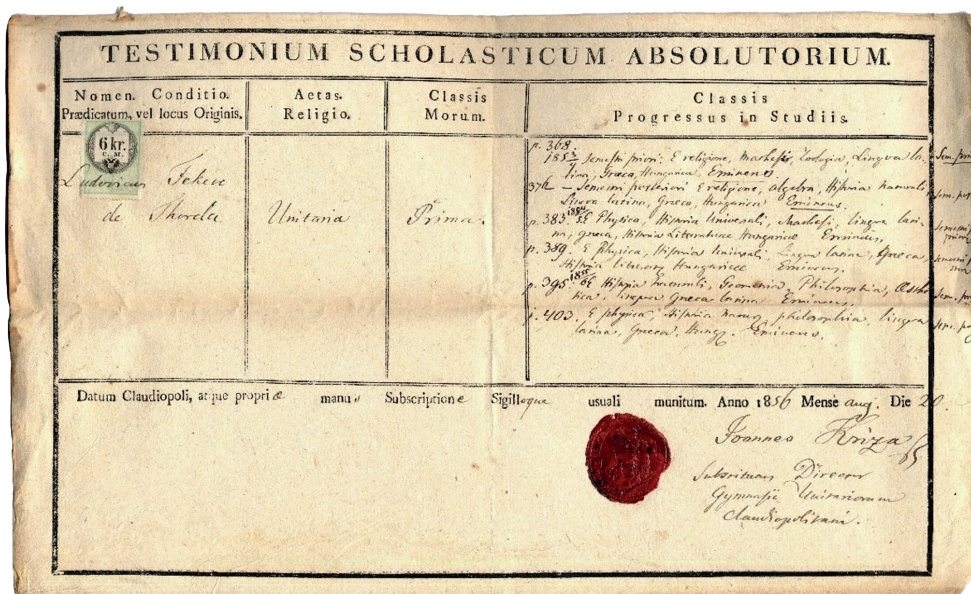 TESTIMONIUM SCHOLASTICUM ABSOLUTORIUM.
Nomen. Conditio.
Prædicatum, vel locus Originis.
Aetas.
Religio.
Classis
Morum.
Classis
Progressus in Studiis.
6 kr.
C. M.
Ludovicus Fekete
de Thorda
Unitaria
Prima.
p. 368.
semestri priori; E religione, Mathesi, Zoologia, Lingva la-
tina, Græca, Hungarica, Eminens.
376 — Semestri posteriori E religione, algebra, Historia Naturali,
Lingva latina, Græca, Hungarica Eminens.
p. 383 E Physica, Historia Universali, Mathesi, lingva lati-
na, græca, Historia Literaturæ Hungaricæ Eminens.
p. 389. E physica, Historia Universali, Lingva latina, Græca,
Historia literaria Hungaricæ Eminens.
p. 395 E Historia Naturali, Geometria, Philosophia, Æsthe-
tica, lingva Græca latina Eminens.
p. 403. E physica, Historia Natur, philosophia, lingva
latina, Græca, Hung. Eminens.
Datum Claudiopoli, atque propriæ manu Subscriptione Sigilloque usuali munitum. Anno 1856 Mense aug. Die 20.
Joannes Kriza
Substitutus Director
Gymnasii Unitariorum
Claudiopolitani.